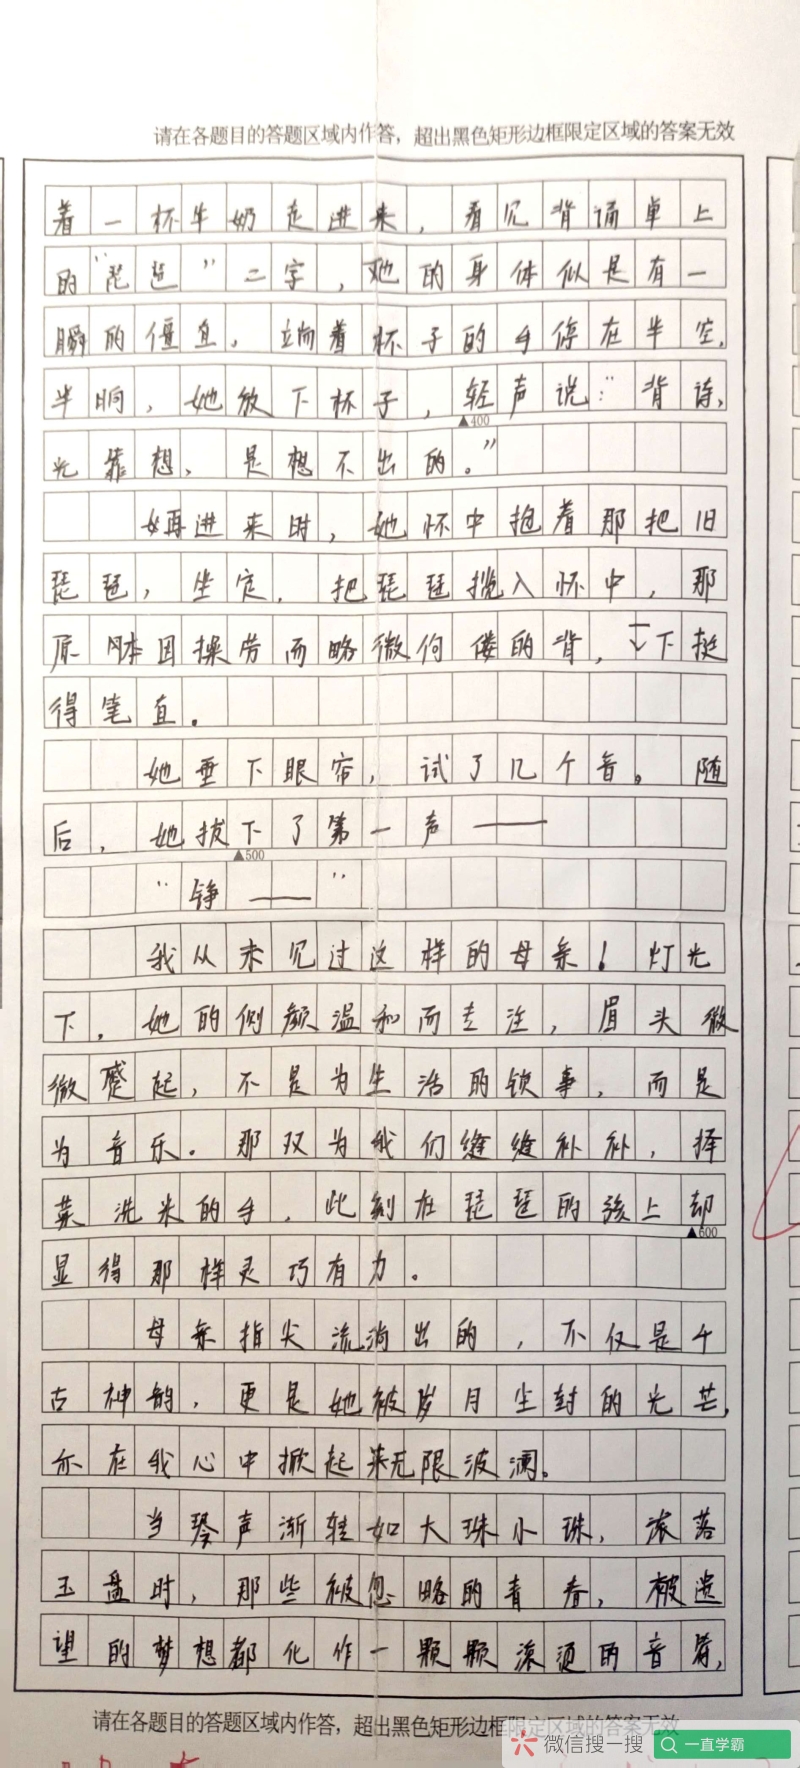 请在各题目的答题区域内作答，超出黑色矩形边框限定区域的答案无效
着一杯牛奶走进来，看见背诵单上
的“琵琶”二字，她的身体似是有一
瞬的僵直，端着杯子的手停在半空，
半晌，她放下杯子，轻声说：“背诗，
▲400
光靠想，是想不出的。”
她再进来时，她怀中抱着那把旧
琵琶，坐定，把琵琶揽入怀中，那
原本因操劳而略微佝偻的背，一下挺
得笔直。
她垂下眼帘，试了几个音。随
后，她拔下了第一声——
▲500
“铮——”
我从未见过这样的母亲！灯光
下，她的侧颜温和而专注，眉头微
微蹙起，不是为生活的锁事，而是
为音乐。那双为我们缝缝补补，择
菜洗米的手，此刻在琵琶的弦上却
▲600
显得那样灵巧有力。
母亲指尖流淌出的，不仅是千
古神韵，更是她被岁月尘封的光芒，
亦在我心中掀起来无限波澜。
当琴声渐转如大珠小珠，滚落
玉盘时，那些被忽略的青春，被遗
望的梦想都化作一颗颗滚烫的音符，
请在各题目的答题区域内作答，超出黑色矩形边框限定区域的答案无效
微信搜一搜 一直学霸